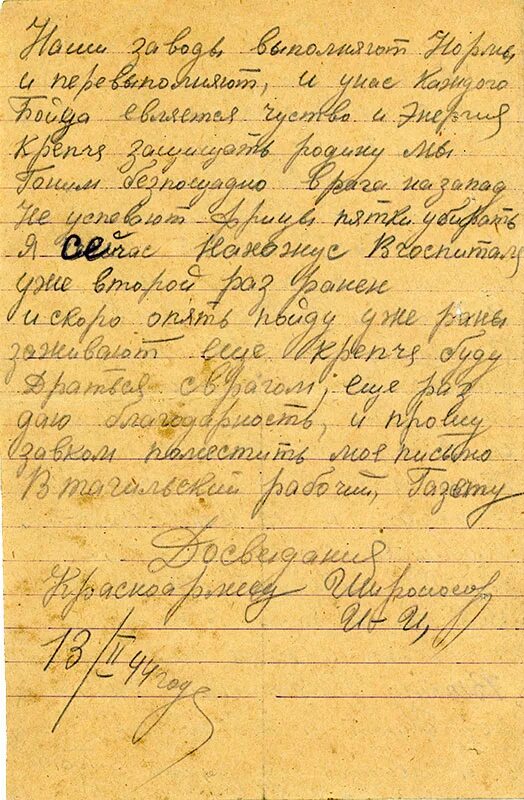 Наши заводы выполняют Нормы
и перевыполняют, и унас Каждого
Бойца евляется чуство и Энергия
крепчя защищать родину мы
Гоним безпощадно врага назапад
Не успевают Фрицы пятки убирать
Я сейчас Нахожус Вгоспитале
уже второй раз ранен
и скоро опять пойду уже раны
заживают еще Крепчя буду
Драться сврагом, еще раз
даю благодарность, и прошу
завком поместить мое письмо
В тагильский рабочий, Газету
Досведания
Красноармеец
И-И
13/II 44 года